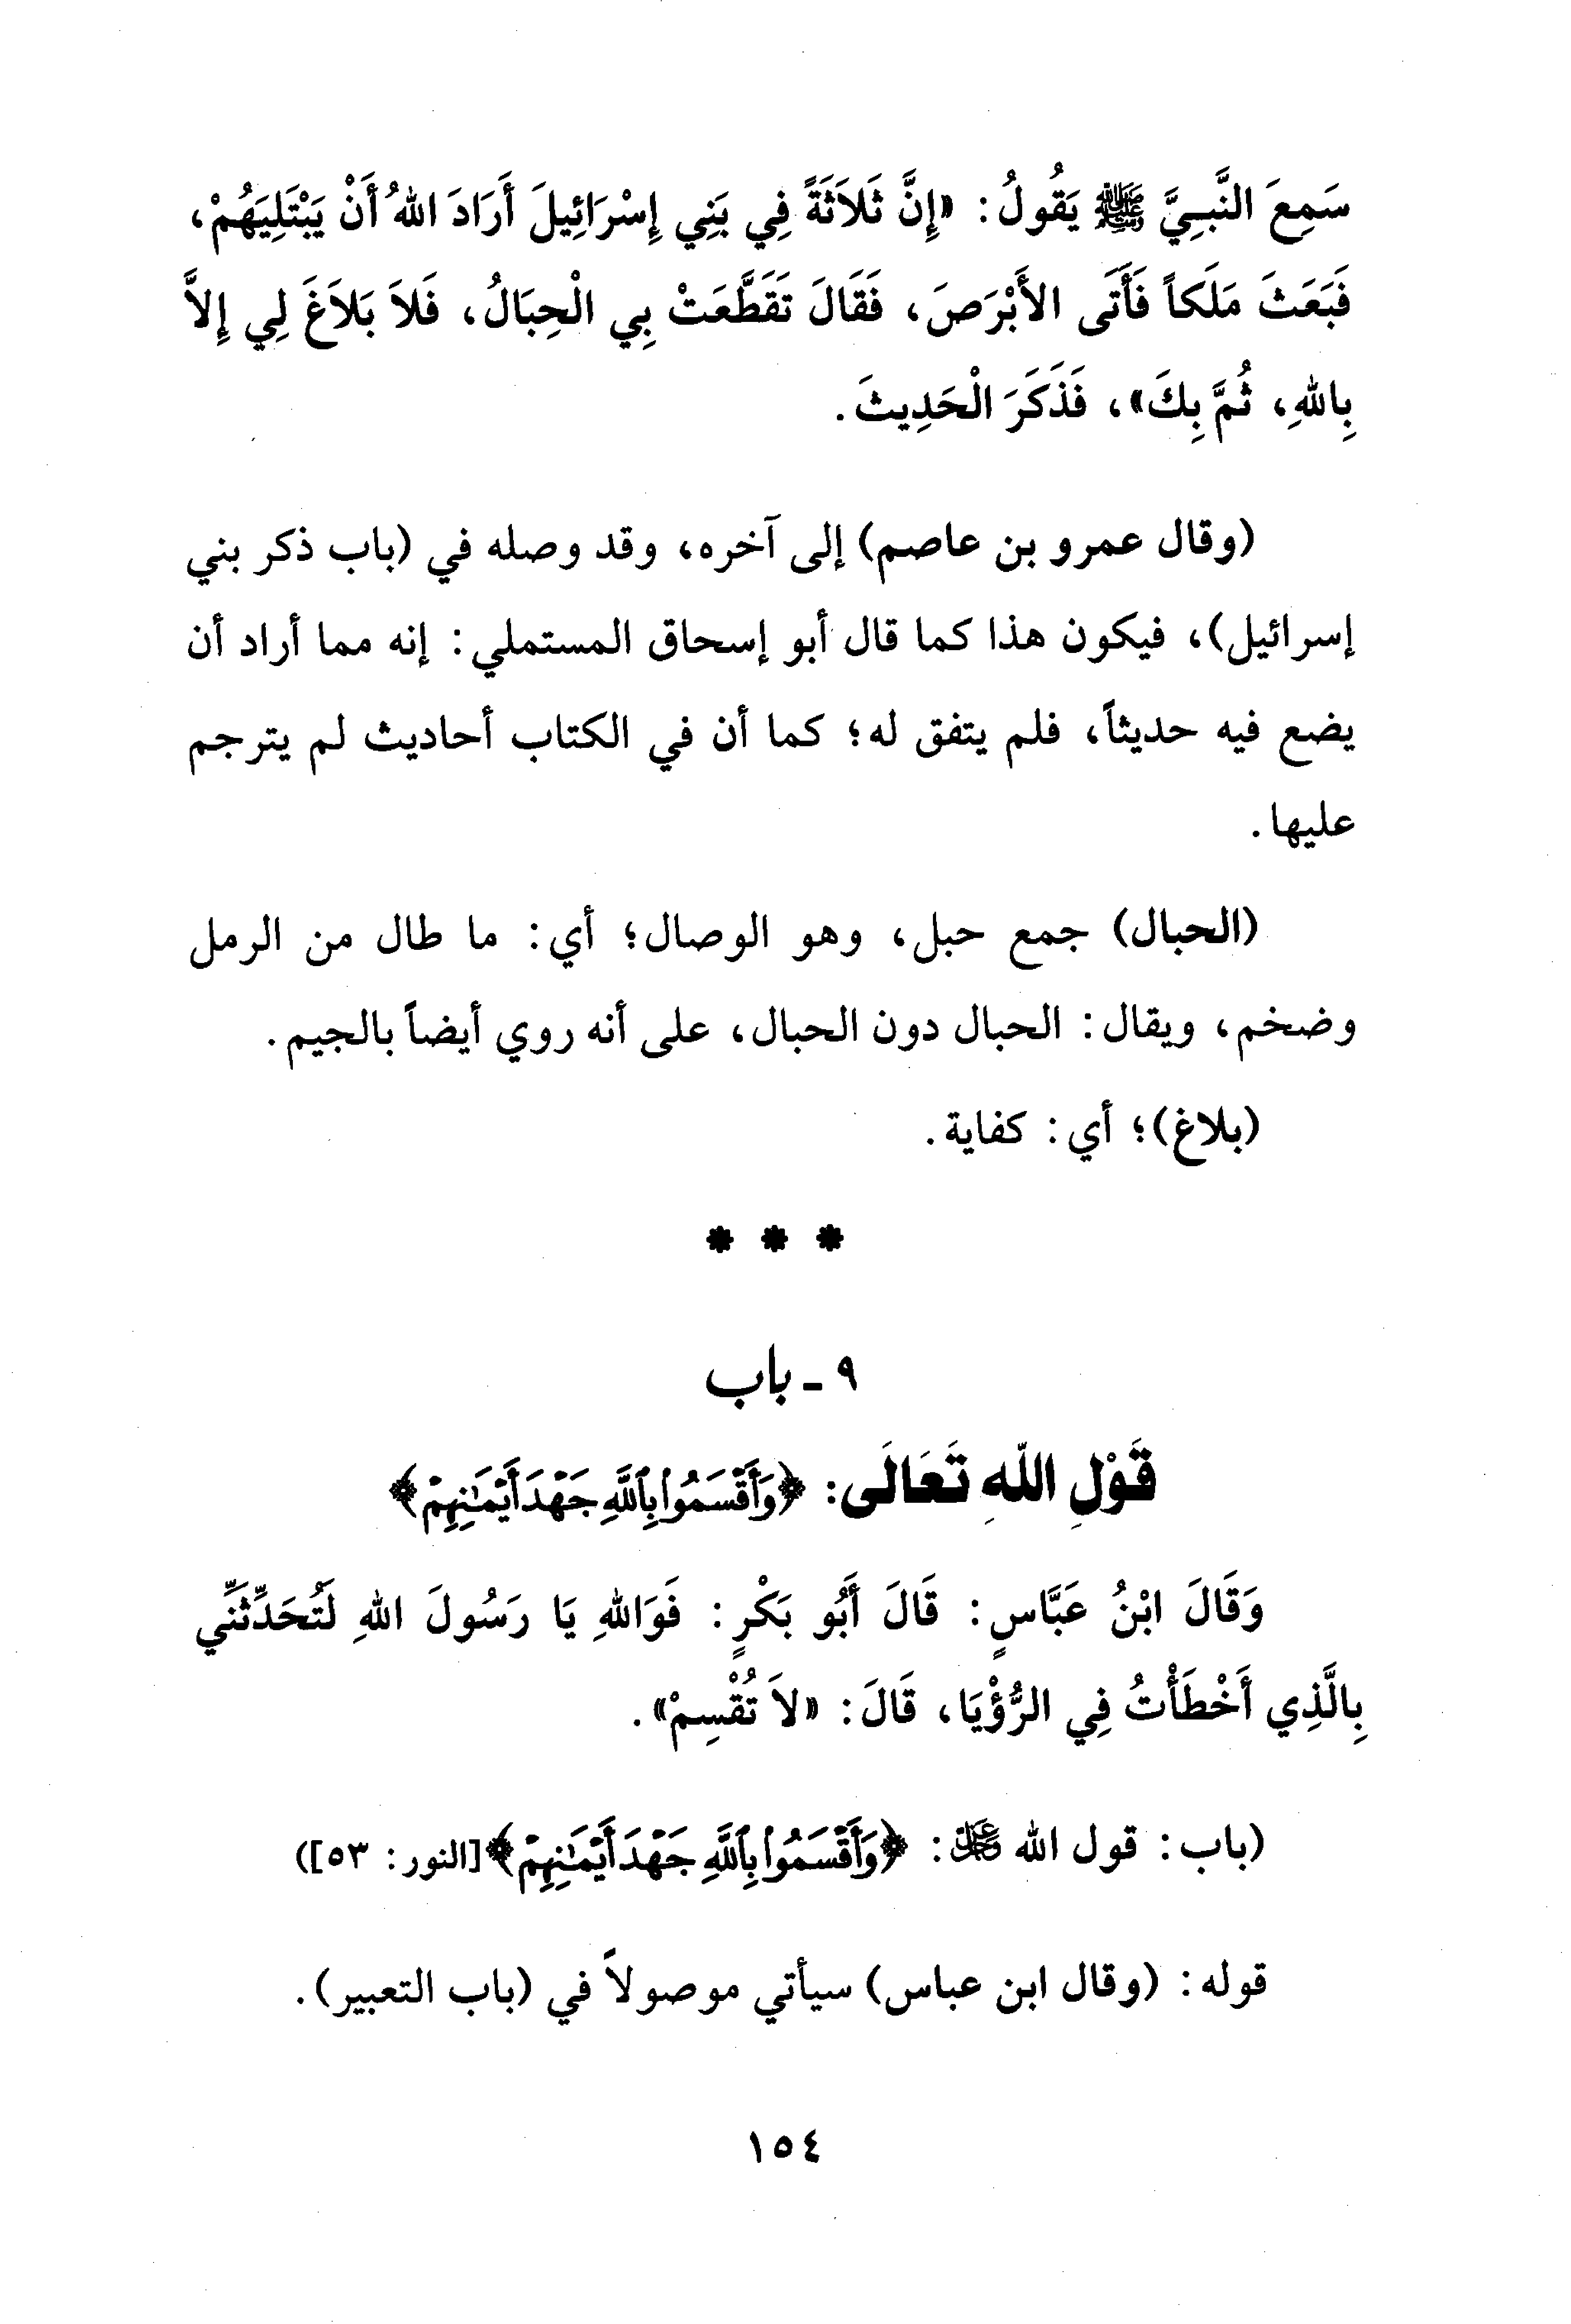 سَمِعَ النَّبِيَّ ﷺ يَقُولُ: «إِنَّ ثَلاَثَةً فِي بَنِي إِسْرَائِيلَ أَرَادَ اللهُ أَنْ يَبْتَلِيَهُمْ،
فَبَعَثَ مَلَكاً فَأَتَى الأَبْرَصَ، فَقَالَ تَقَطَّعَتْ بِي الْحِبَالُ، فَلاَ بَلاَغَ لِي إِلاَّ
بِاللهِ، ثُمَّ بِكَ»، فَذَكَرَ الْحَدِيثَ.
(وقال عمرو بن عاصم) إلى آخره، وقد وصله في (باب ذكر بني
إسرائيل)، فيكون هذا كما قال أبو إسحاق المستملي: إنه مما أراد أن
يضع فيه حديثاً، فلم يتفق له؛ كما أن في الكتاب أحاديث لم يترجم
عليها.
(الحبال) جمع حبل، وهو الوصال؛ أي: ما طال من الرمل
وضخم، ويقال: الحبال دون الحبال، على أنه روي أيضاً بالجيم.
(بلاغ)؛ أي: كفاية.
* * *
٩ ـ باب
قَوْلِ اللَّهِ تَعَالَى: ﴿وَأَقْسَمُوا۟ بِٱللَّهِ جَهْدَ أَيْمَـٰنِهِمْ﴾
وَقَالَ ابْنُ عَبَّاسٍ: قَالَ أَبُو بَكْرٍ: فَوَاللهِ يَا رَسُولَ اللهِ لَتُحَدِّثَنِّي
بِالَّذِي أَخْطَأْتُ فِي الرُّؤْيَا، قَالَ: «لاَ تُقْسِمْ».
(باب: قول الله ﷻ: ﴿وَأَقْسَمُوا۟ بِٱللَّهِ جَهْدَ أَيْمَـٰنِهِمْ﴾ [النور: ٥٣])
قوله: (وقال ابن عباس) سيأتي موصولاً في (باب التعبير).
١٥٤